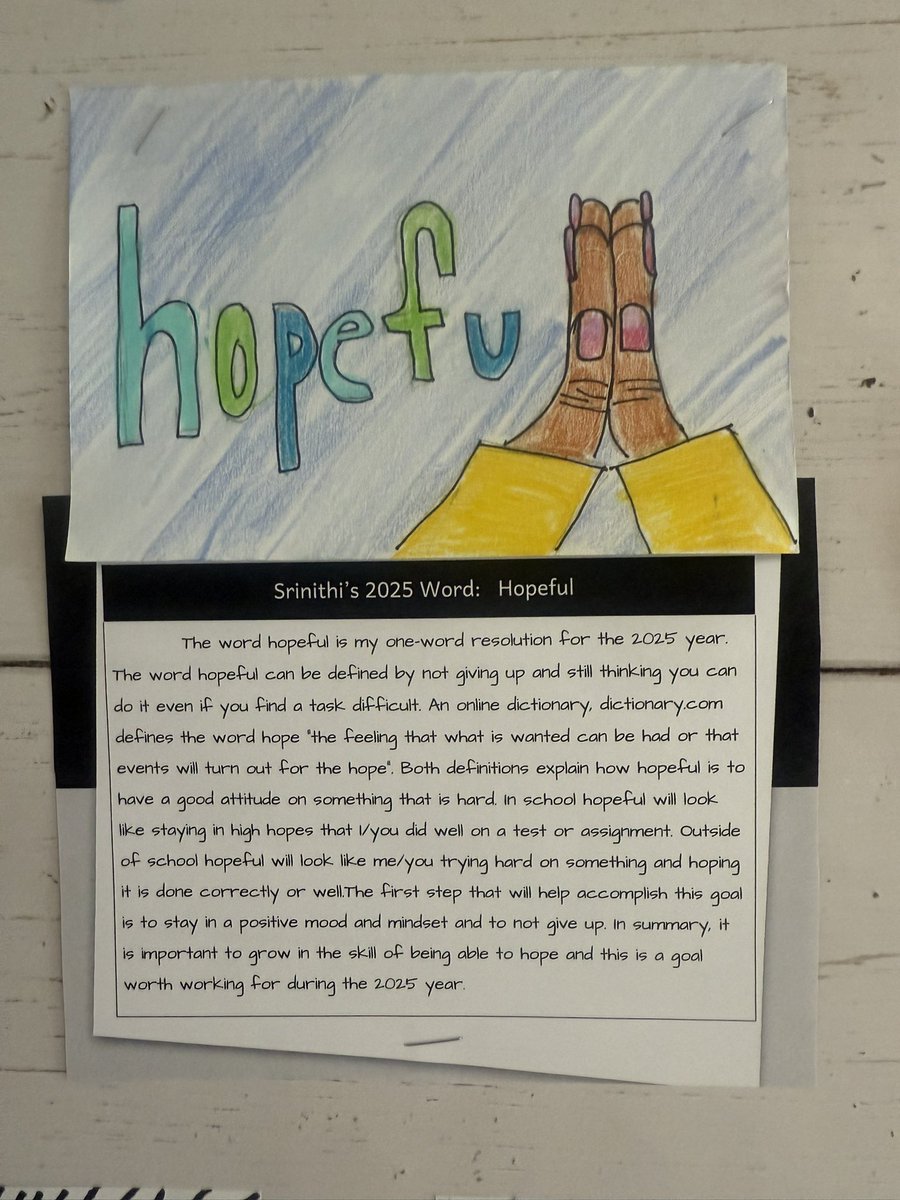 hopefu
Srinithi's 2025 Word: Hopeful
The word hopeful is my one-word resolution for the 2025 year.
The word hopeful can be defined by not giving up and still thinking you can
do it even if you find a task difficult. An online dictionary, dictionary.com
defines the word hope "the feeling that what is wanted can be had or that
events will turn out for the hope". Both definitions explain how hopeful is to
have a good attitude on something that is hard. In school hopeful will look
like staying in high hopes that I/you did well on a test or assignment. Outside
of school hopeful will look like me/you trying hard on something and hoping
it is done correctly or well.The first step that will help accomplish this goal
is to stay in a positive mood and mindset and to not give up. In summary, it
is important to grow in the skill of being able to hope and this is a goal
worth working for during the 2025 year.